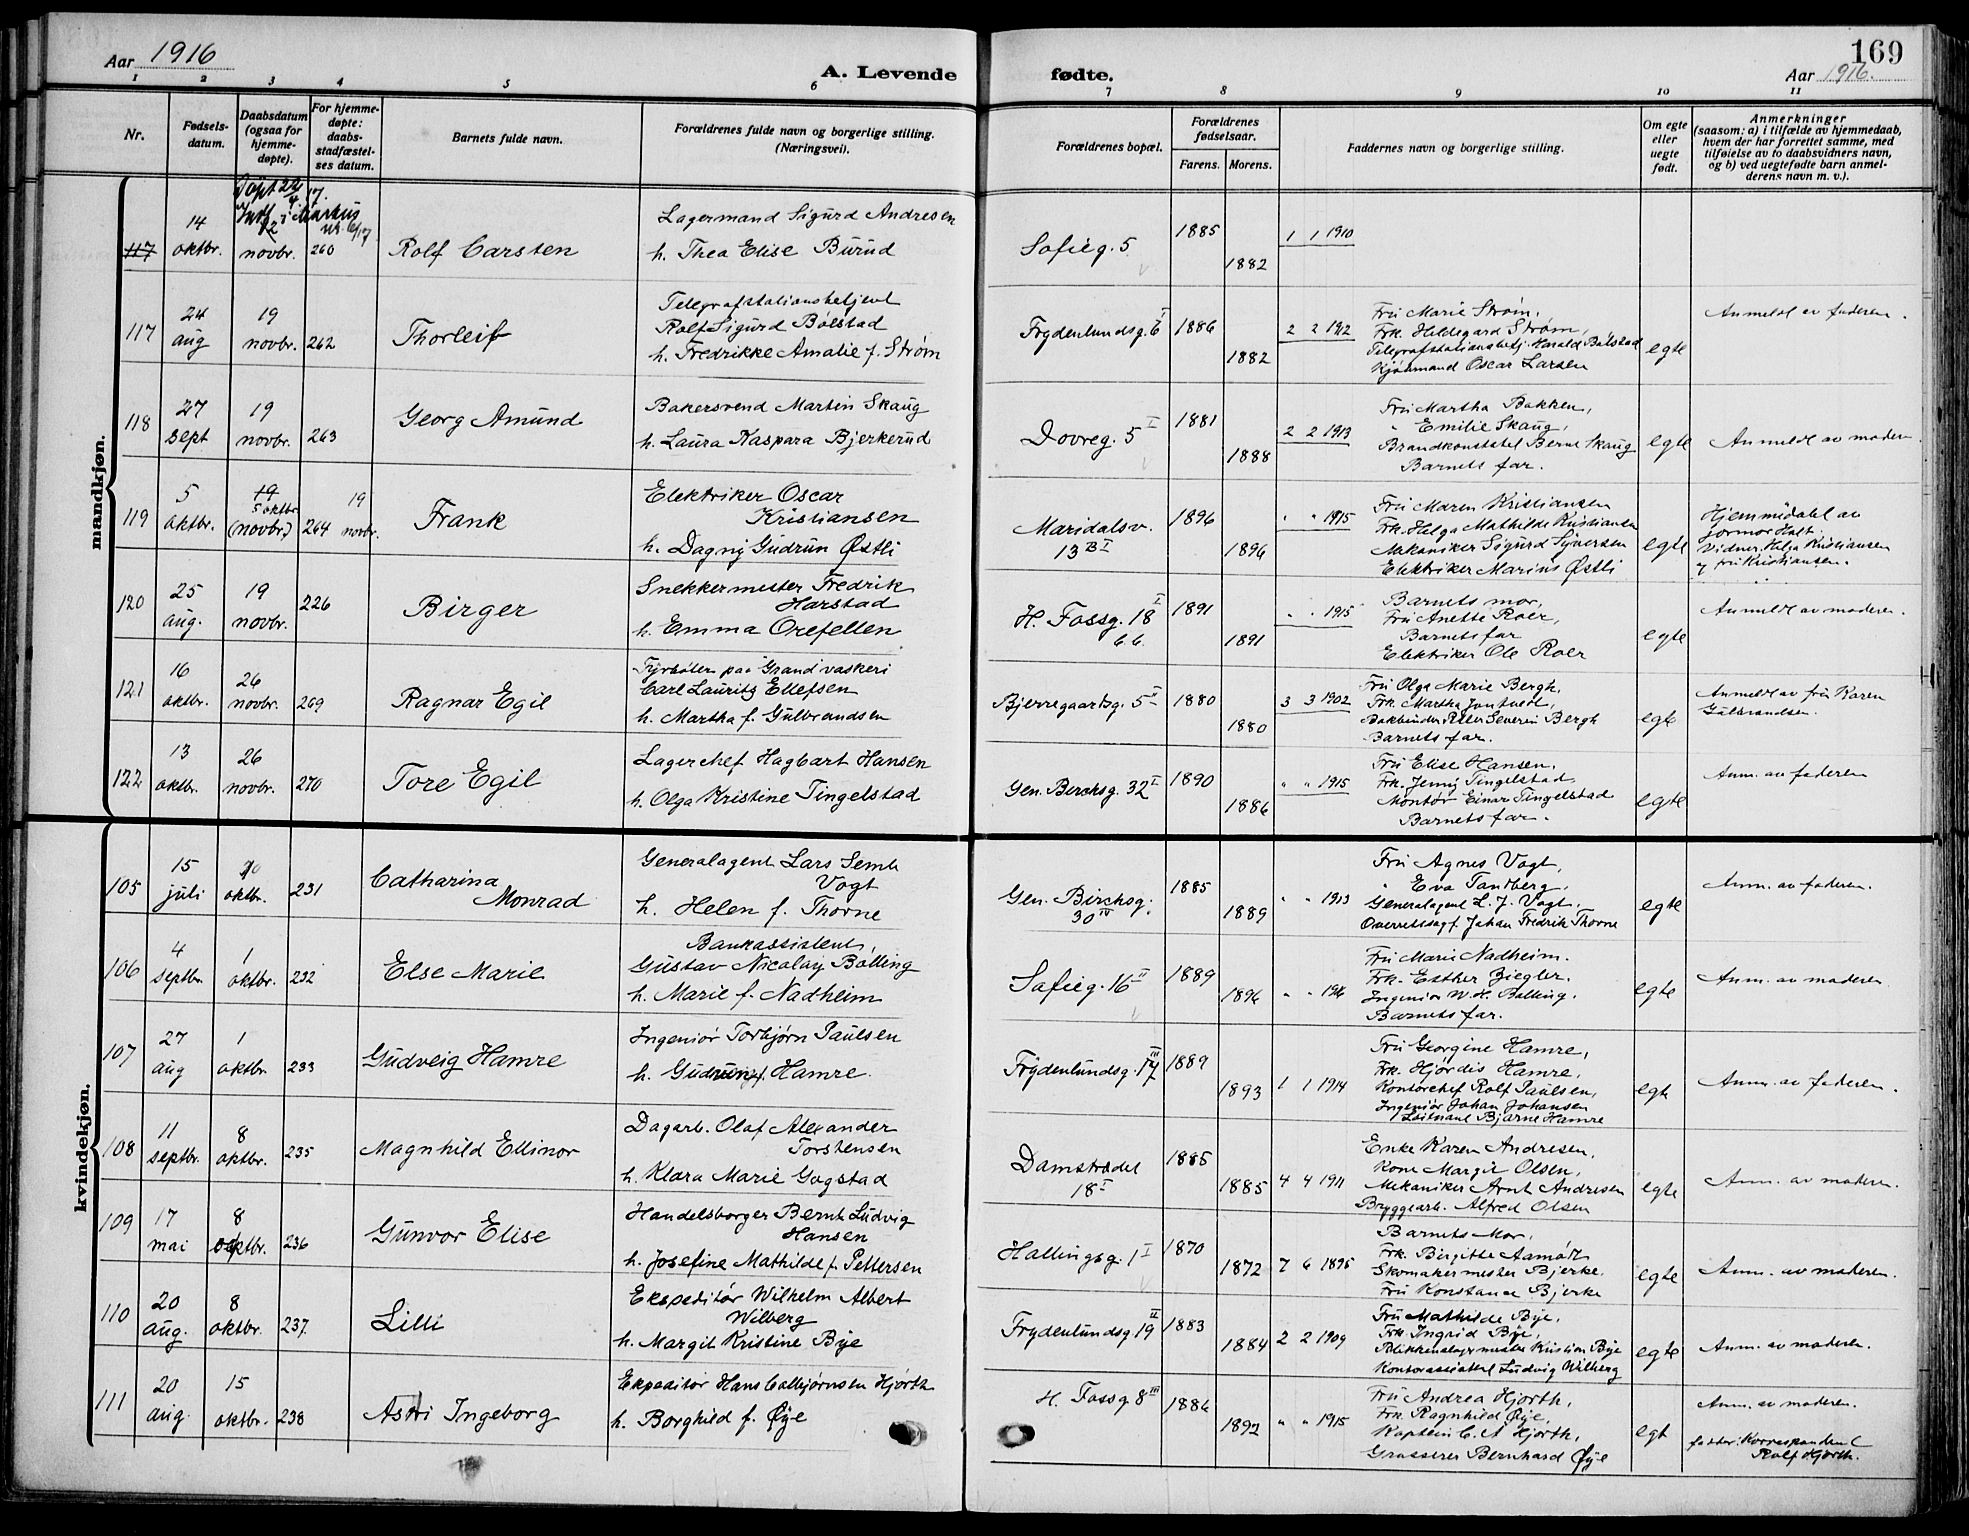 Aar 1916
A. Levende
fødte.
169
Aar 1916.
1 2 3 4 5 6 7 8 9 10 11
Nr.
Fødsels-
datum.
Daabsdatum
(ogsaa for
hjemme-
døpte).
For hjemme-
døpte:
daabs-
stadfæstel-
ses datum.
Barnets fulde navn.
Forældrenes fulde navn og borgerlige stilling.
(Næringsvei).
Forældrenes bopæl.
Forældrenes
fødselsaar.
Farens. Morens.
Faddernes navn og borgerlige stilling.
Om egte
eller
uegte
født.
Anmerkninger
(saasom: a) i tilfælde av hjemmedaab,
hvem der har forrettet samme, med
tilføielse av to daabsvidners navn,
og b) ved uegtefødte barn anmel-
derens navn m. v.).
mandkjøn.
Døpt 22/4 17.
Indf. i Markus
nr. 6/17
117 14 oktbr. 12 novbr. 260 Rolf Carsten
Lagermand Sigurd Andresen
h. Thea Elise Burud
Sofieg. 5 1885 1882 1 1 1910
117 24 aug 19 novbr. 262 Thorleif
Telegrafstationsbetjent
Rolf Sigurd Bølstad
h. Fredrikke Amalie f. Strøm
Frydenlundsg. 6 I 1886 1882 2 2 1912
Fru Marie Strøm,
Frk. Hildegard Strøm,
Telegrafstationsbetj. Harald Bølstad
Kjøbmand Oscar Larsen
egte
Anmeldt av faderen.
118 27 sept 19 novbr. 263 Georg Amund
Bakersvend Martin Skaug
h. Laura Kaspara Bjerkerud
Dovreg. 5 I 1881 1888 2 2 1913
Fru Martha Bakken,
" Emilie Skaug,
Brandkonstabel Bernt Skaug
Barnets far.
egte
Anmeldt av moderen
119 5 oktbr. 19 5 oktbr (novbr.) 264 19 novbr. Frank
Elektriker Oscar
Kristiansen
h. Dagny Gudrun Østli
Maridalsv.
13 B I 1896 1896 " " 1915
Fru Maren Kristiansen
Frk. Helga Mathilde Kristiansen
Mekaniker Sigurd Syversen
Elektriker Marius Østli
egte
Hjemmedøbt av
Jormor Holt.
Vidner: Helga Kristiansen
og fru Kristiansen.
120 25 aug. 19 novbr. 226 Birger
Snekkermester Fredrik
Harstad
h. Emma Orefellen
H. Fossg. 18 I 1891 1891 " " 1915
Barnets mor,
Fru Anette Roer,
Barnets far
Elektriker Ole Roer
egte
Anmeldt av moderen.
121 16 oktbr. 26 novbr. 269 Ragnar Egil
Fyrbøter paa Grand vaskeri
Carl Lauritz Ellefsen
h. Martha f. Gulbrandsen
Bjerregaardsg. 5 II 1880 1880 3 3 1902
Fru Olga Marie Bergh,
Frk. Martha Jontvedt,
Bokbinder Peter Severin Bergh
Barnets far.
egte
Anmeldt av fru Karen
Gulbrandsen.
122 13 oktbr. 26 novbr. 270 Tore Egil
Lagerchef Hagbart Hansen
h. Olga Kristine Tingelstad
Gen. Birchsg. 32 I 1890 1886 " " 1915
Fru Elise Hansen,
Frk. Jenny Tingelstad
Montør Einar Tingelstad
Barnets far.
egte
Anm. av faderen
kvindekjøn.
105 15 juli oktbr. 231 Catharina
Monrad
Generalagent Lars Semb
Vogt
h. Helen f. Thorne
Gen. Birchsg.
30 IV 1885 1889 " " 1913
Fru Agnes Vogt,
" Eva Tandberg,
Generalagent L. J. Vogt,
Overretssagf. Johan Fredrik Thorne
egte
Anm. av faderen.
106 4 septbr. 1 oktbr. 232 Else Marie
Bankassistent
Gustav Nicolay Bolling
h. Marie f. Nadheim
Sofieg. 16 II 1889 1896 " " 1916
Fru Marie Nadheim.
Frk. Esther Ziegler.
Ingeniør W. H. Bolling.
Barnets far.
egte
Anm. av moderen
107 27 aug 1 oktbr. 233 Gudveig Hamre
Ingeniør Torbjørn Paulsen
h. Gudrun f. Hamre.
Frydenlundsg. 14 III 1889 1893 1 1 1914
Fru Georgine Hamre,
Frk. Hjørdis Hamre,
Kontorchef Rolf Paulsen,
Ingeniør Johan Johansen
Løitnant Bjarne Hamre
egte
Anm. av faderen.
108 11 septbr. 8 oktbr. 235 Magnhild Ellinor
Dagarb. Olaf Alexander
Torstensen
h. Klara Marie Gogstad
Damstrædet
18 I 1885 1885 4 4 1911
Enke Karen Andresen,
Kone Margit Olsen,
Mekaniker Arnt Andresen
Bryggearb. Alfred Olsen
egte
Anm. av moderen.
109 17 mai 8 oktbr. 236 Gunvor Elise
Handelsborger Bernt Ludvig
Hansen
h. Josefine Mathilde f. Pettersen
Hallingsg. 1 I 1870 1872 7 6 1895
Barnets Mor,
Frk. Birgitte Aamodt
Skomakermester Bjerke.
Fru Konstance Bjerke
egte
Anm. av moderen.
110 20 aug. 8 oktbr. 237. Lilli
Ekspeditør Wilhelm Albert
Wilberg
h. Margit Kristine Bye
Frydenlundsg. 19 II 1883 1884 2 2 1909
Fru Mathilde Bye,
Frk. Ingrid Bye,
Blikkenslagermester Kristian Bye
Kontorassistent Ludvig Wilberg
egte
Anm. av moderen.
111 20 aug. 15 oktbr. 238 Astri Ingeborg
Ekspeditør Hans Colbjørnsen Hjorth
h. Borghild f. Øye
H. Fossg. 8 III 1886 1892 " " 1915
Fru Andrea Hjorth,
Frk. Ragnhild Øye,
Kaptein C. A. Hjorth,
Grosserer Bernhard Øye
egte
Anm. av moderen.
fadder: Korrespondent
Rolf Hjorth.